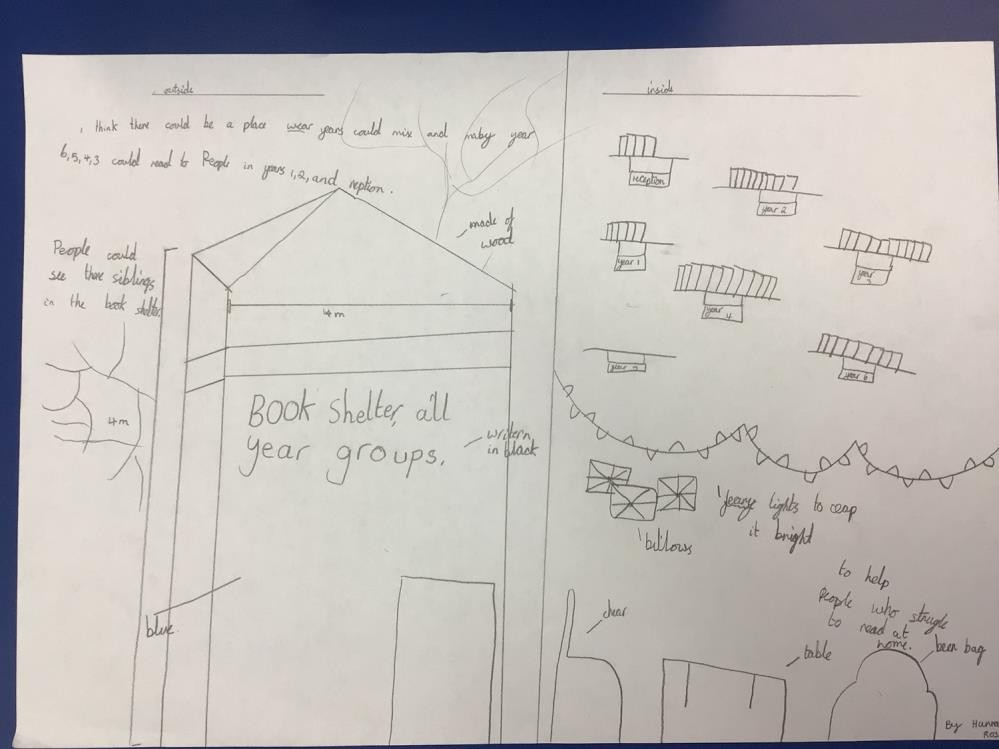 outside
I think there could be a place wear years could mix and maby year
6,5,4,3 could read to People in years 1,2, and reption.
made of
wood
People could
see there siblings
in the book shelter.
4m
4m
BOOK Shelter, all
year groups.
writern
in black
blue.
inside
reception
year 2
year 1
year 3
year 4
year 5
year 6
lights to ceap
it bright
billows
to help
People who strugle
to read at
home.
chear
table
been bag
By Hanna